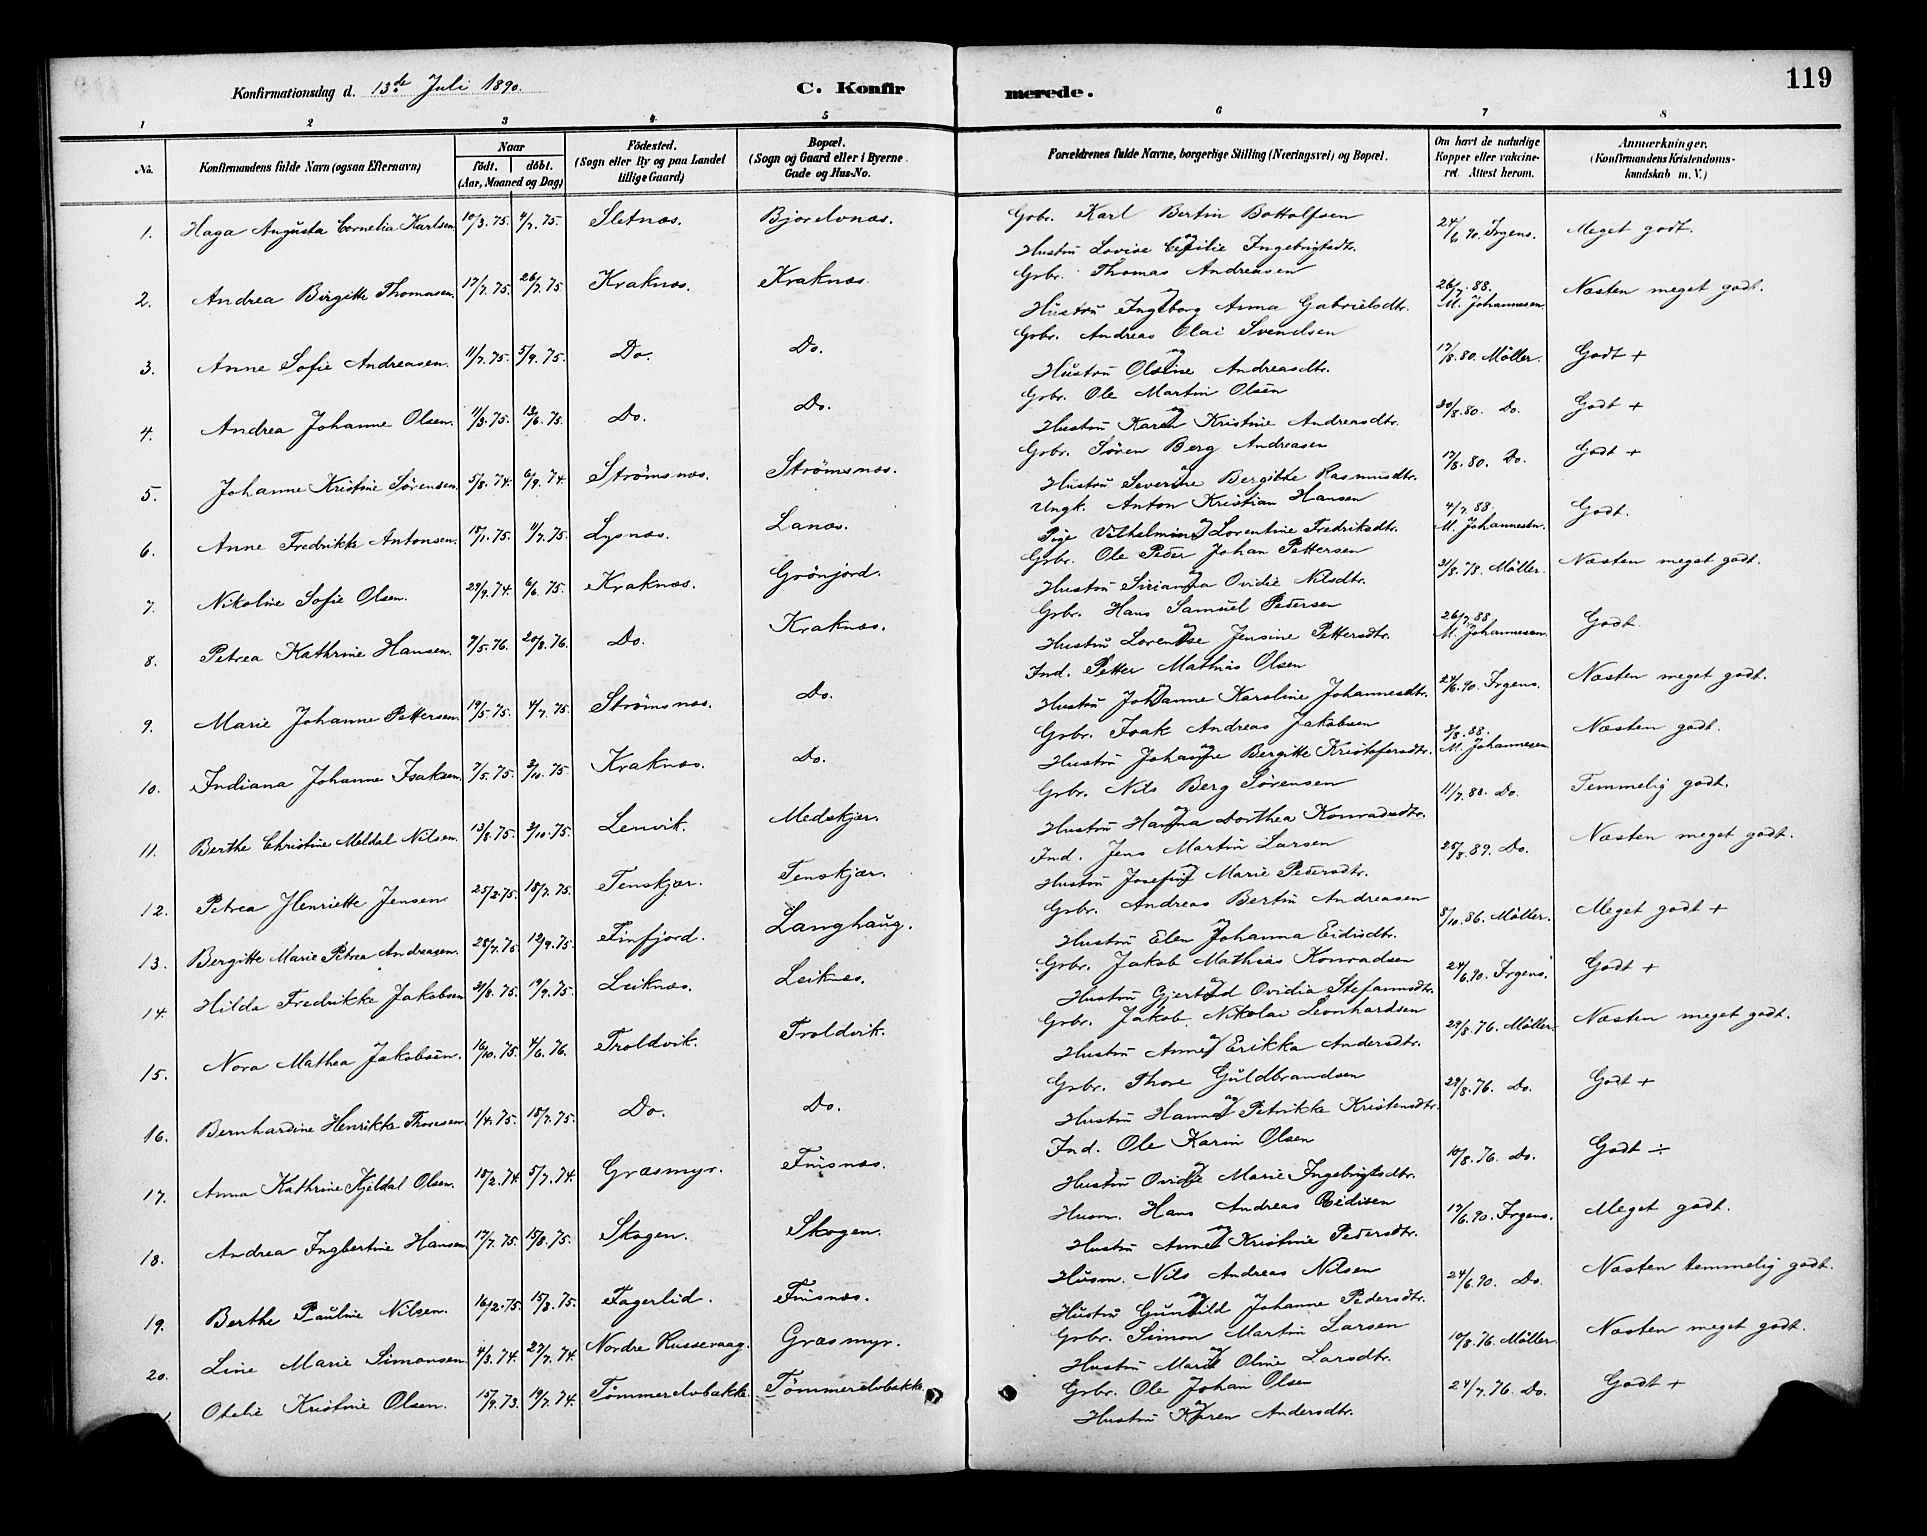 119
Konfirmationsdag d. 13de Juli 1890.
C. Konfirmerede.
1 2 3 4 5 6 7 8
No. Konfirmandens fulde Navn (ogsaa Efternavn) Naar født. døbt. (Aar, Maaned og Dag) Fødested. (Sogn eller By og paa Landet tillige Gaard) Bopæl. (Sogn og Gaard eller i Byerne Gade og Hus-No. Forældrenes fulde Navne, borgerlige Stilling (Næringsvei) og Bopæl. Om havt de naturlige Kopper eller vakcineret. Attest herom. Anmærkninger. (Konfirmandens Kristendomskundskab m. V.)
1. Haga Augusta Cornelia Karlsen 10/3.75. 4/7.75. Sletnæs. Bjorelvnæs. Gbr. Karl Bertin Bottolfsen og Hustru Lovise Cesilie Ingebrigtsdtr. 24/6 90. Irgens. Meget godt.
2. Andrea Birgitte Thomasen. 17/7.75. 26/7.75. Kraknæs. Kraknæs. Gbr. Thomas Andreasen og Hustru Ingeborg Anna Gabrielsdtr. 26/7.88. M. Johannesen Næsten meget godt.
3. Anne Sofie Andreasen. 11/7.75. 5/9.75. Do. Do. Gbr. Andreas Olai Svendsen og Hustru Olsine Andreasdtr. 17/8.80. Möller. Godt +
4. Andrea Johanne Olsen. 11/3.75. 13/6.75. Do. Do. Gbr. Ole Martin Olsen og Hustru Karen Kristine Andreasdtr. 20/8.80. Do. Godt +
5. Johanne Kristine Sørensen. 5/8.74. 6/9.74. Strömsnæs. Strömsnæs. Gbr. Søren Berg Andreasen og Hustru Severine Bergitte Rasmusdtr. 17/8.80. Do. Godt +
6. Anne Fredrikke Antonsen. 18/1.75. 11/7.75. Lysnæs. Lanæs. Ungk. Anton Kristian Hansen og Pige Vilhelmine Lorentine Fredriksdtr. 4/7.88. M. Johannesen. Godt.
7. Nikoline Sofie Olsen. 29/9.74. 6/6.75. Kraknæs. Grönjord. Gbr. Ole Peder Johan Pettersen og Hustru Sirianna Ovidie Nilsdtr. 31/8.78. Möller. Næsten meget godt.
8. Petrea Kathrine Hansen. 7/5.76. 20/8.76. Do. Kraknæs. Gbr. Hans Samuel Pedersen og Hustru Lorentse Jensine Pettersdtr. 26/7.88 M. Johannesen. Godt.
9. Marie Johanne Pettersen. 19/5.75. 4/7.75. Strömsnæs. Do. Ind. Petter Mathias Olsen og Hustru Johanne Karoline Johannesdtr. 24/6.90. Irgens. Næsten meget godt.
10. Indiana Johanne Isaksen. 7/5.75. 3/10.75 Kraknæs. Do. Gbr. Isak Andreas Jakobsen og Hustru Johanne Bergitte Kristofersdtr. 3/8.88. M. Johannesen Næsten godt.
11. Berthe Christine Meldal Nilsen. 13/8.75. 3/10.75. Lenvik. Medskjær. Gbr. Nils Berg Sörensen og Hustru Hanna Dorthea Konradsdtr. 11/7.88. Do. Temmelig godt.
12. Petrea Henriette Jensen 25/2.75. 18/7.75. Tenskjær. Tenskjær. Ind. Jens Martin Larsen og Hustru Josefine Marie Pedersdtr. 25/8.89. Do. Næsten meget godt.
13. Bergitte Marie Petrea Andreasen. 28/7.75. 12/9.75. Finfjord. Langhaug. Gbr. Andreas Bertin Andreasen og Hustru Elen Johanna Eidisdtr. 8/10.86. Möller. Meget godt +
14. Hilda Fredrikke Jakobsen 31/8.75. 19/9.75. Leiknæs. Leiknæs. Gbr. Jakob Mathias Konradsen og Hustru Gjertrud Ovidia Stefanusdtr. 24/6.90. Irgens. Godt +
15. Nora Mathea Jakobsen. 16/10.75. 4/6.76. Troldvik. Troldvik. Gbr. Jakob Nikolai Leonhardsen og Hustru Anne Erikka Andersdtr. 29/8.76. Möller. Næsten meget godt.
16. Bernhardine Henrikke Thoresen. 1/4.75. 18/7.75. Do. Do. Gbr. Thore Guldbrandsen og Hustru Hanne Petrikke Kristensdtr. 29/8.76. Do. Godt +
17. Anna Kathrine Kjeldal Olsen. 18/2.74. 5/7.74. Græsmyr. Finsnæs. Ind. Ole Karin Olsen og Hustru Ovidie Marie Ingebrigtsdtr. 10/8.76. Do. Godt ÷
18. Andrea Ingbertine Hansen. 17/7.75. 15/8.75. Skogen. Skogen. Husm. Hans Andreas Eidisen og Hustru Anne Kristine Pedersdtr. 17/6.90. Irgens. Meget godt.
19. Berthe Pauline Nilsen. 16/2.75. 15/8.75. Fagerlid. Finsnæs. Husm. Nils Andreas Nilsen og Hustru Gunhild Johanne Pedersdtr. 24/6.90. Do. Næsten temmelig godt.
20. Line Marie Simonsen. 4/3.74. 27/7.74. Nordre Russevaag. Græsmyr. Gbr. Simon Martin Larsen og Hustru Marie Oline Larsdtr. 10/8.76. Möller. Næsten meget godt.
Otelie Kristine Olsen. 15/9.73. 19/7.74. Tömmerelvbakke. Tömmerelvbakke. Gbr. Ole Johan Olsen og Hustru Karen Andersdtr. 24/7.76. Do. Godt +